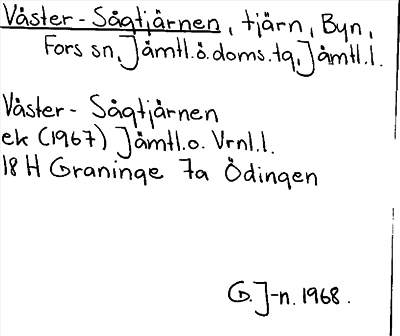 Väster-Sågtjärnen, tjärn, Byn,
Fors sn, Jämtl.ö.doms.tg, Jämtl.l.
Väster-Sågtjärnen
ek (1967) Jämtl.o. Vrnl.l.
18 H Graninge 7a Ödingen
G. J-n. 1968.